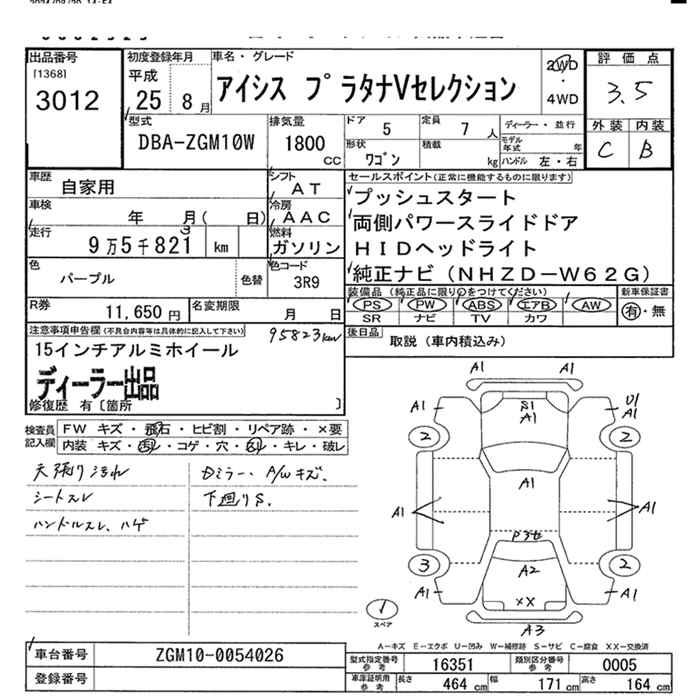 出品番号
[1368]
3012
初度登録年月
平成
25 8月
車名・グレード
アイシス プラタナVセレクション
2WD
・
4WD
評価点
3.5
外装 内装
C B
型式
DBA-ZGM10W
排気量
1800
CC
ドア 5
定員 7 人
ディーラー・並行
形状 ワゴン
積載 kg
モデル年式 年
ハンドル 左・右
車歴 自家用
シフト AT
車検 年 月( 日)
冷房 AAC
走行 9万5千821 km
3
燃料 ガソリン
色 パープル
色替
色コード 3R9
R券 11,650円
名変期限 月 日
セールスポイント(正常に機能するものに限ります)
プッシュスタート
両側パワースライドドア
HIDヘッドライト
純正ナビ(NHZD-W62G)
装備品(純正品に限り○をつけてください)
新車保証書
PS PW ABS エアB AW
有・無
SR ナビ TV カワ
後日品 取説(車内積込み)
注意事項申告欄(不具合内容等は具体的に記入して下さい)
95823km
15インチアルミホイール
ディーラー出品
修復歴 有〔箇所 〕
検査員記入欄
FW キズ・飛石・ヒビ割・リペア跡・×要
内装 キズ・汚レ・コゲ・穴・スレ・キレ・破レ
天張り汚れ
シートスレ
ハンドルスレ、ハゲ
Dミラー・A/Wキズ、
下廻りS.
A1
A1
A1
S1
A1
U1
A1
2
2
A1
A1
A1
P3
3
2
A2
A1
A1
XX
A3
1
スペア
A-キズ E-エクボ U-凹み W-補修跡 S-サビ C-腐食 XX-交換済
車台番号 ZGM10-0054026
登録番号
型式指定番号 参考 16351
類別区分番号 参考 0005
車庫証明用 参考 長さ 464 cm 幅 171 cm 高さ 164 cm